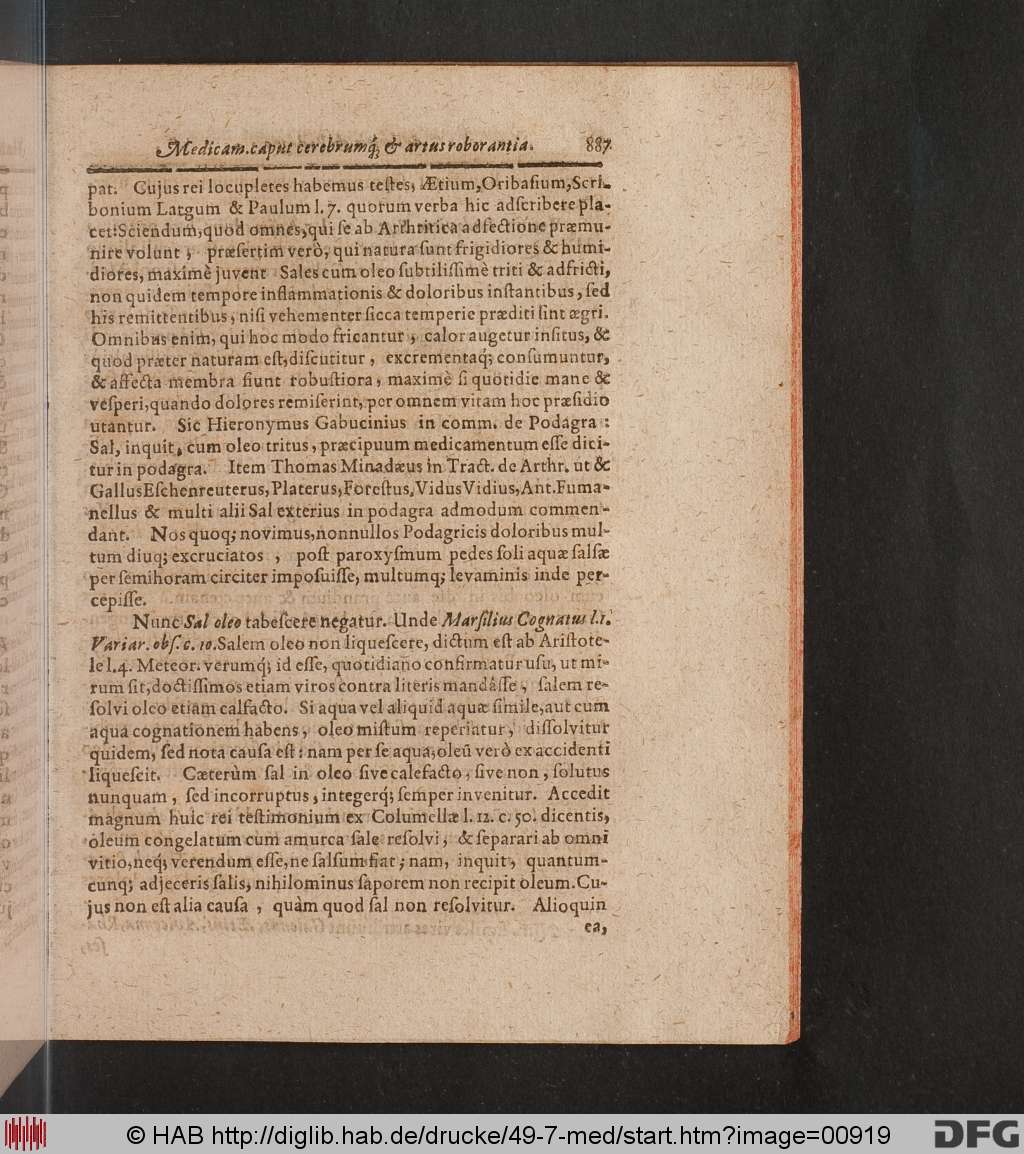 Medicam. caput cerebrumq́; & artus roborantia. 887
pat. Cujus rei locupletes habemus teſtes, Ætium, Oribaſium, Scri-
bonium Largum & Paulum l. 7. quorum verba hic adſcribere pla-
cet: Sciendum, quod omnes, qui ſe ab Arthritica adfectione præmu-
nire volunt, præſertim verò, qui natura ſunt frigidiores & humi-
diores, maximè juvent Sales cum oleo ſubtiliſſimè triti & adfricti,
non quidem tempore inflammationis & doloribus inſtantibus, ſed
his remittentibus, niſi vehementer ſicca temperie præditi ſint ægri.
Omnibus enim, qui hoc modo fricantur, calor augetur inſitus, &
quod præter naturam eſt, diſcutitur, excrementaq́; conſumuntur,
& affecta membra fiunt robuſtiora, maximè ſi quotidie mane &
veſperi, quando dolores remiſerint, per omnem vitam hoc præſidio
utantur. Sic Hieronymus Gabucinius in comm. de Podagra:
Sal, inquit, cum oleo tritus, præcipuum medicamentum eſſe dici-
tur in podagra. Item Thomas Minadæus in Tract. de Arthr. ut &
Gallus Eſchenreuterus, Platerus, Foreſtus, Vidus Vidius, Ant. Fuma-
nellus & multi alii Sal exterius in podagra admodum commen-
dant. Nos quoq; novimus, nonnullos Podagricis doloribus mul-
tum diuq; excruciatos, poſt paroxyſmum pedes ſoli aquæ ſalſæ
per ſemihoram circiter impoſuiſſe, multumq; levaminis inde per-
cepiſſe.
Nunc Sal oleo tabeſcere negatur. Unde Marſilius Cognatus l. 1.
Variar. obſ. c. 10. Salem oleo non liqueſcere, dictum eſt ab Ariſtote-
le l. 4. Meteor. verumq́; id eſſe, quotidiano confirmatur uſu, ut mi-
rum ſit, doctiſſimos etiam viros contra literis mandâſſe, ſalem re-
ſolvi oleo etiam calfacto. Si aqua vel aliquid aquæ ſimile, aut cum
aqua cognationem habens, oleo miſtum reperiatur, diſſolvitur
quidem, ſed nota cauſa eſt: nam per ſe aqua, oleũ verò ex accidenti
liqueſcit. Cæterùm ſal in oleo ſive calefacto, ſive non, ſolutus
nunquam, ſed incorruptus, integerq́; ſemper invenitur. Accedit
magnum huic rei teſtimonium ex Columellæ l. 12. c. 50. dicentis,
oleum congelatum cum amurca ſale reſolvi, & ſeparari ab omni
vitio, neq́; verendum eſſe, ne ſalſum fiat; nam, inquit, quantum-
cunq́; adjeceris ſalis, nihilominus ſaporem non recipit oleum. Cu-
jus non eſt alia cauſa, quàm quod ſal non reſolvitur. Alioquin
ea,
© HAB http://diglib.hab.de/drucke/49-7-med/start.htm?image=00919
DFG